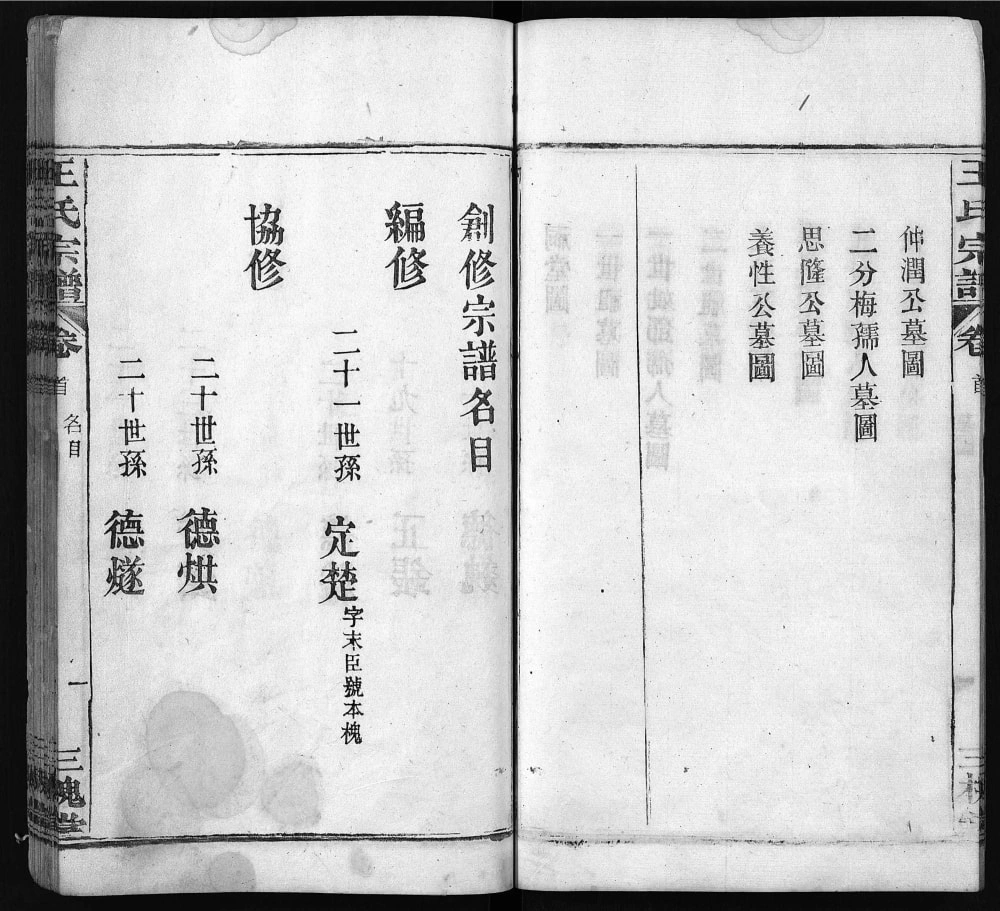 王氏宗譜
卷
首
三槐
仲潤公墓圖
二分梅孺人墓圖
思隆公墓圖
養性公墓圖
創修宗譜名目
編修
二十一世孫 定楚 字末臣號本槐
協修
二十世孫 德烘
二十世孫 德燧
王氏宗譜
卷
首
名目
一
三槐堂